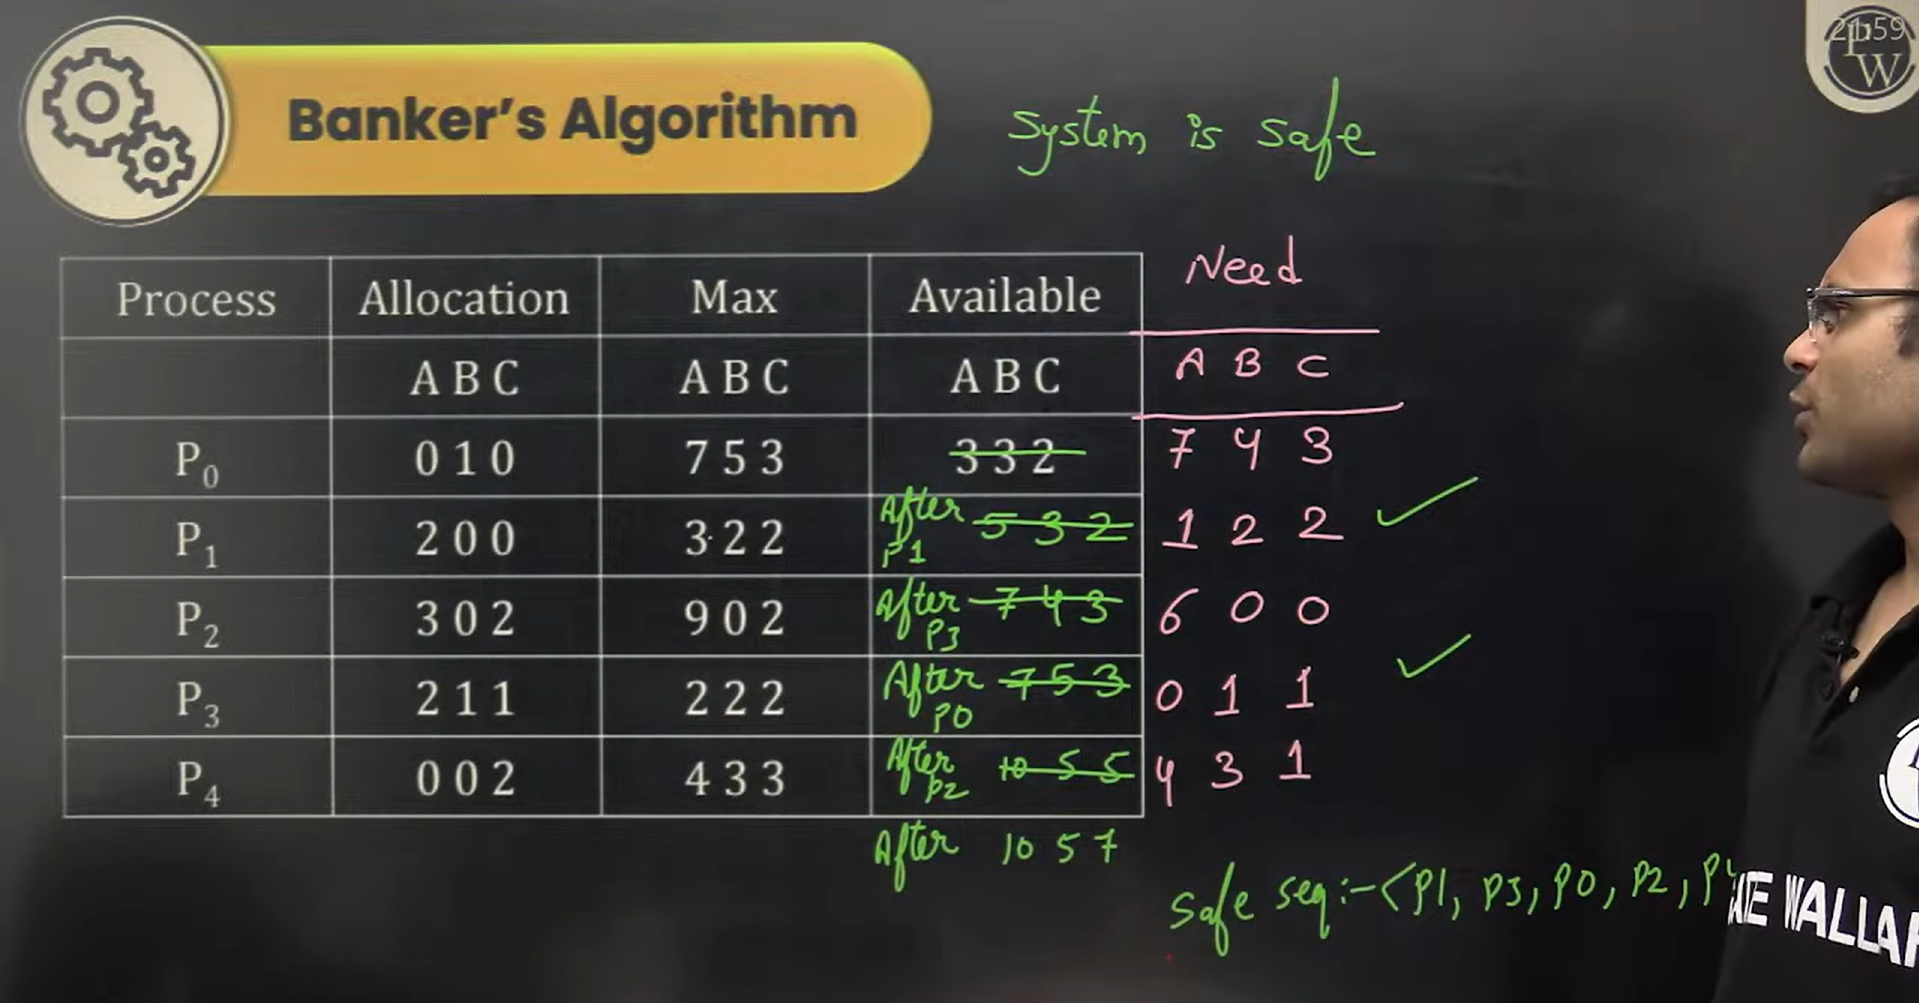 21:59
P
W
Banker's Algorithm
System is safe
Need
Process Allocation Max Available
A B C A B C A B C A B C
P0 0 1 0 7 5 3 3 3 2 7 4 3
P1 2 0 0 3 2 2 After P1 5 3 2 1 2 2 ✓
P2 3 0 2 9 0 2 After P3 7 4 3 6 0 0
P3 2 1 1 2 2 2 After P0 7 5 3 0 1 1 ✓
P4 0 0 2 4 3 3 After P2 10 5 5 4 3 1
After 10 5 7
Safe seq:-<P1, P3, P0, P2, P
WALLA